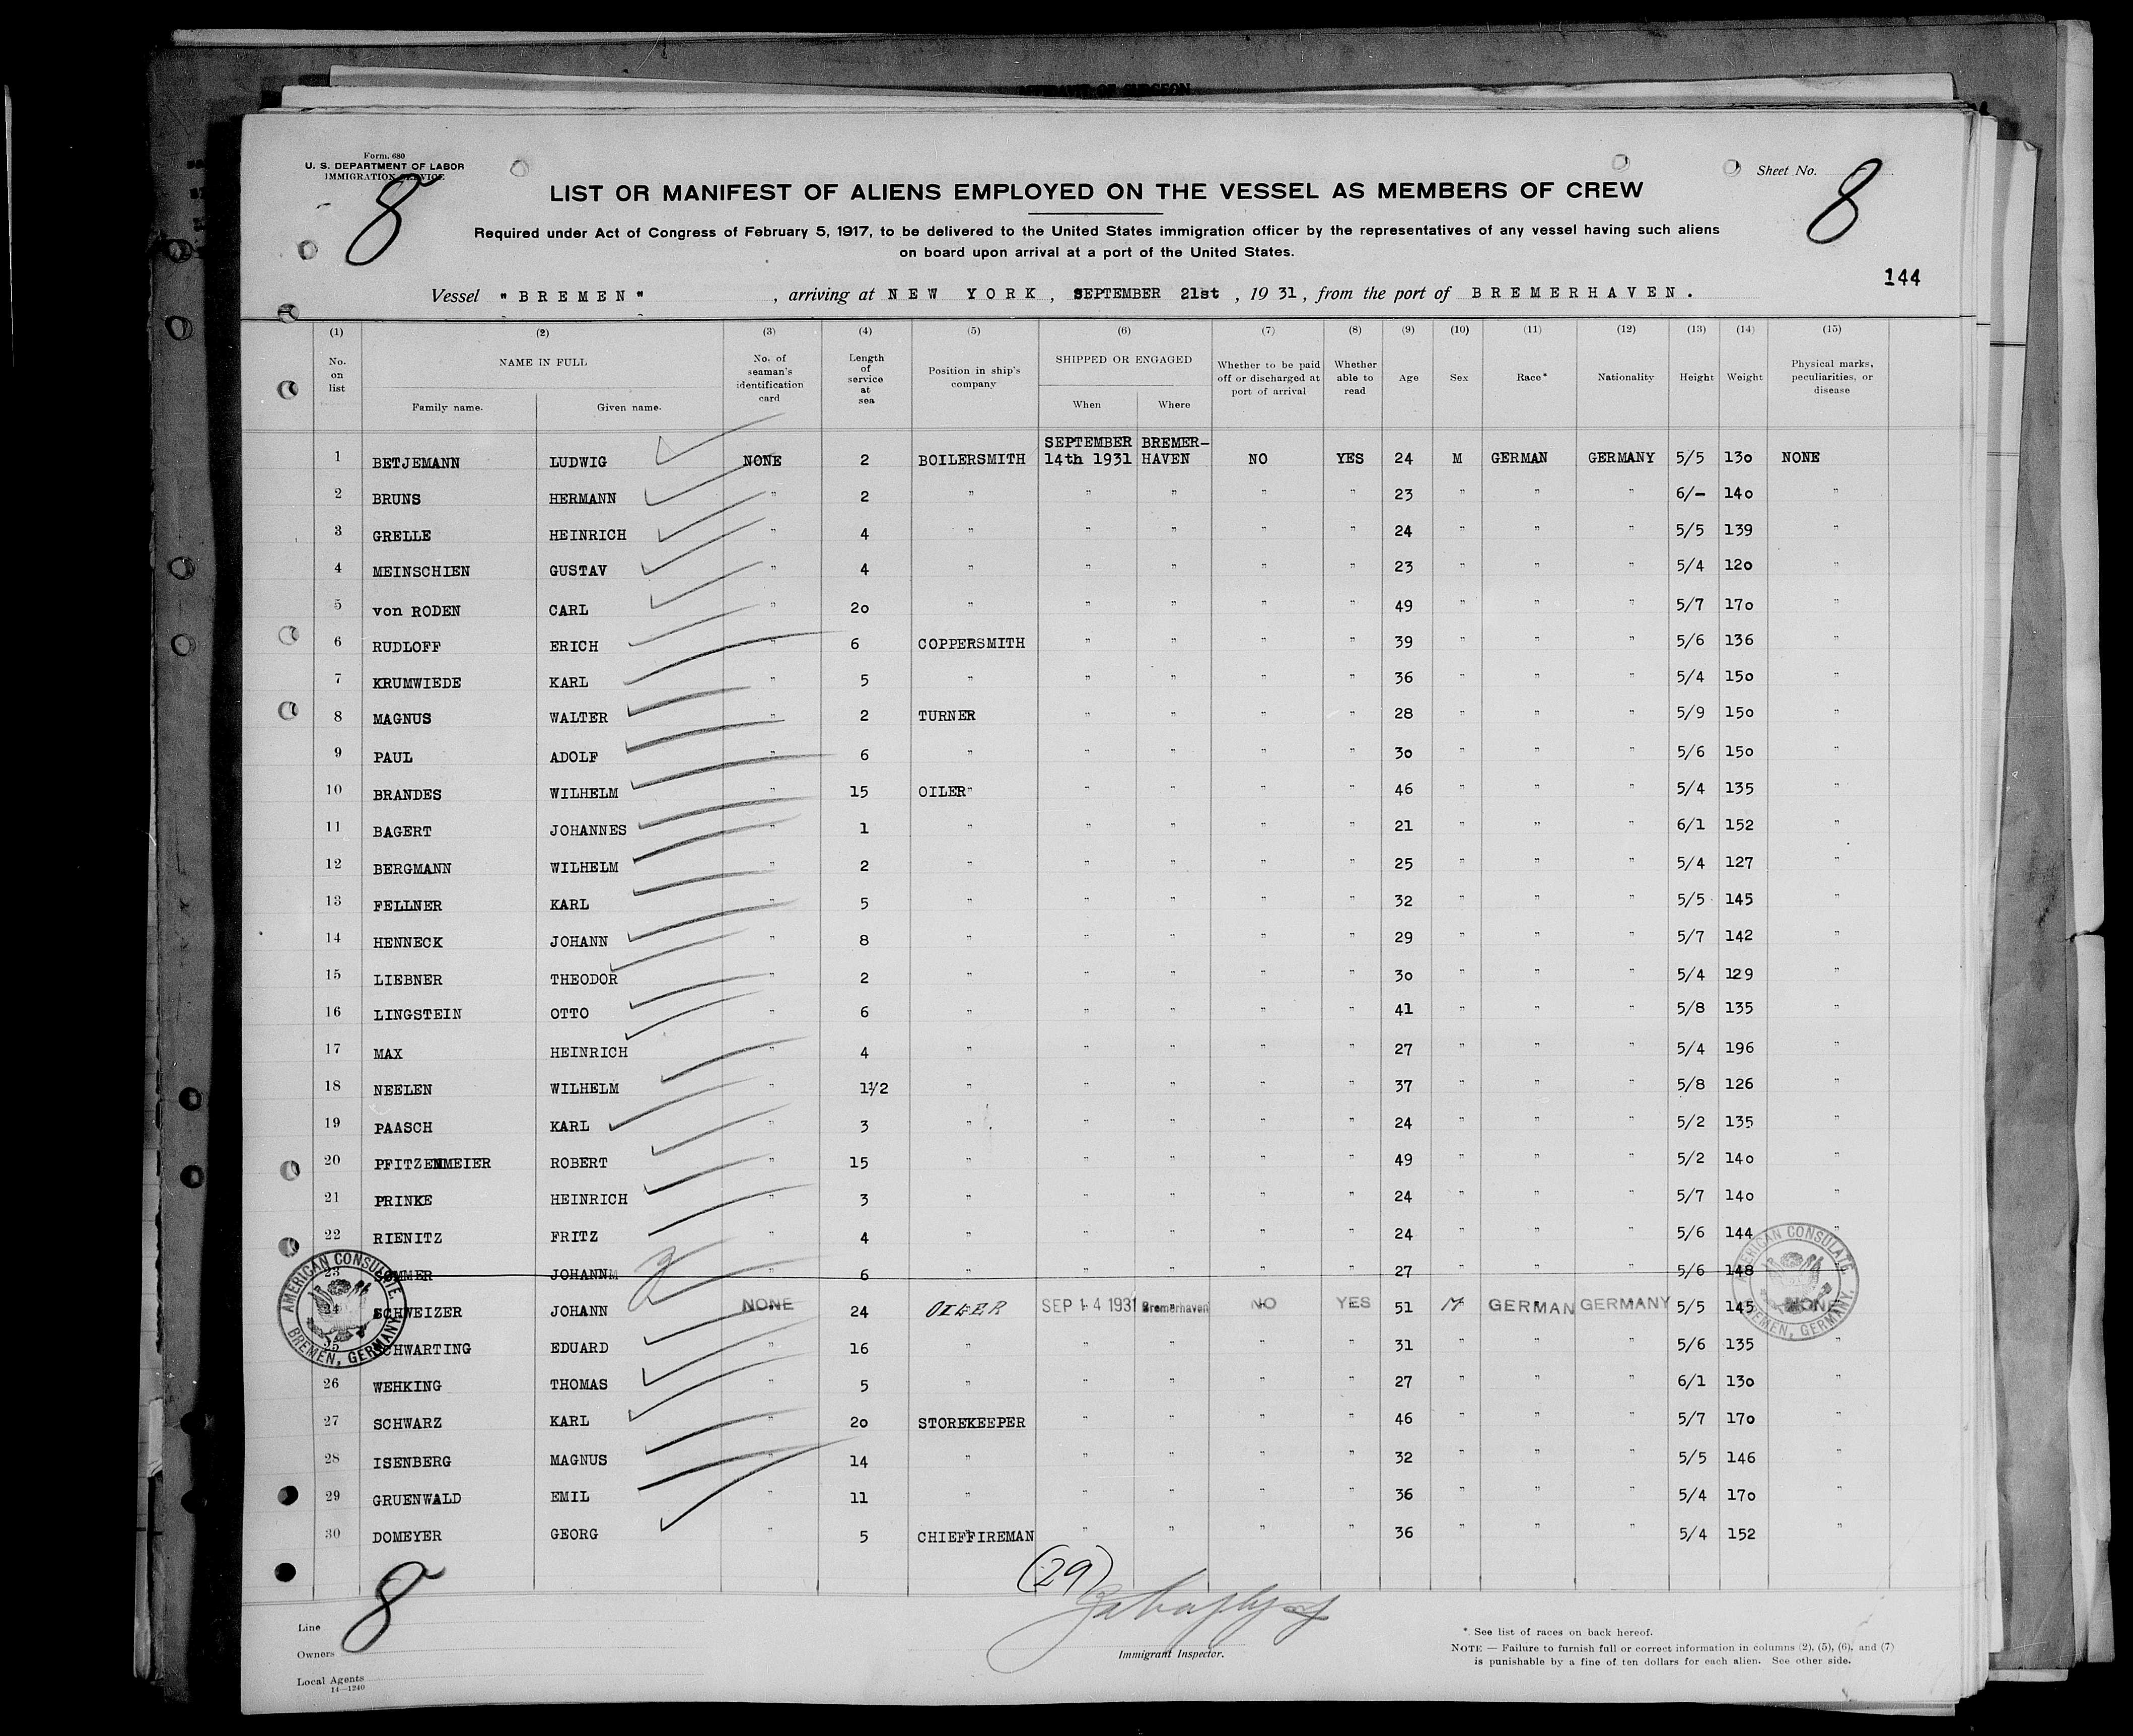 AFFIDAVIT OF SURGEON
Form. 680
U. S. DEPARTMENT OF LABOR
IMMIGRATION SERVICE
8
Sheet No. 8
LIST OR MANIFEST OF ALIENS EMPLOYED ON THE VESSEL AS MEMBERS OF CREW
Required under Act of Congress of February 5, 1917, to be delivered to the United States immigration officer by the representatives of any vessel having such aliens
on board upon arrival at a port of the United States.
144
Vessel "BREMEN", arriving at NEW YORK, SEPTEMBER 21st, 1931, from the port of BREMERHAVEN.
(1) (2) (3) (4) (5) (6) (7) (8) (9) (10) (11) (12) (13) (14) (15)
No. on list NAME IN FULL Family name. Given name. No. of seaman's identification card Length of service at sea Position in ship's company SHIPPED OR ENGAGED When Where Whether to be paid off or discharged at port of arrival Whether able to read Age Sex Race* Nationality Height Weight Physical marks, peculiarities, or disease
1 BETJEMANN LUDWIG NONE 2 BOILERSMITH SEPTEMBER 14th 1931 BREMER-HAVEN NO YES 24 M GERMAN GERMANY 5/5 130 NONE
2 BRUNS HERMANN " 2 " " " " " 23 " " " 6/- 140 "
3 GRELLE HEINRICH " 4 " " " " " 24 " " " 5/5 139 "
4 MEINSCHIEN GUSTAV " 4 " " " " " 23 " " " 5/4 120 "
5 von RODEN CARL " 20 " " " " " 49 " " " 5/7 170 "
6 RUDLOFF ERICH " 6 COPPERSMITH " " " " 39 " " " 5/6 136 "
7 KRUMWIEDE KARL " 5 " " " " " 36 " " " 5/4 150 "
8 MAGNUS WALTER " 2 TURNER " " " " 28 " " " 5/9 150 "
9 PAUL ADOLF " 6 " " " " " 30 " " " 5/6 150 "
10 BRANDES WILHELM " 15 OILER" " " " " 46 " " " 5/4 135 "
11 BAGERT JOHANNES " 1 " " " " " 21 " " " 6/1 152 "
12 BERGMANN WILHELM " 2 " " " " " 25 " " " 5/4 127 "
13 FELLNER KARL " 5 " " " " " 32 " " " 5/5 145 "
14 HENNECK JOHANN " 8 " " " " " 29 " " " 5/7 142 "
15 LIEBNER THEODOR " 2 " " " " " 30 " " " 5/4 129 "
16 LINGSTEIN OTTO " 6 " " " " " 41 " " " 5/8 135 "
17 MAX HEINRICH " 4 " " " " " 27 " " " 5/4 196 "
18 NEELEN WILHELM " 1 1/2 " " " " " 37 " " " 5/8 126 "
19 PAASCH KARL " 3 " " " " " 24 " " " 5/2 135 "
20 PFITZENMEIER ROBERT " 15 " " " " " 49 " " " 5/2 140 "
21 PRINKE HEINRICH " 3 " " " " " 24 " " " 5/7 140 "
22 RIENITZ FRITZ " 4 " " " " " 24 " " " 5/6 144 "
23 SOMMER JOHANN " 6 " " " " " 27 " " " 5/6 148 "
24 SCHWEIZER JOHANN NONE 24 OILER SEP 14 1931 Bremerhaven NO YES 51 M GERMAN GERMANY 5/5 145 NONE
25 SCHWARTING EDUARD " 16 " " " " " 31 " " " 5/6 135 "
26 WEHKING THOMAS " 5 " " " " " 27 " " " 6/1 130 "
27 SCHWARZ KARL " 20 STOREKEEPER " " " " 46 " " " 5/7 170 "
28 ISENBERG MAGNUS " 14 " " " " " 32 " " " 5/5 146 "
29 GRUENWALD EMIL " 11 " " " " " 36 " " " 5/4 170 "
30 DOMEYER GEORG " 5 CHIEFFIREMAN " " " " 36 " " " 5/4 152 "
AMERICAN CONSULATE BREMEN, GERMANY.
AMERICAN CONSULATE BREMEN, GERMANY.
(29)
8
Line
Owners
Local Agents
14—1240
Immigrant Inspector.
* See list of races on back hereof.
NOTE — Failure to furnish full or correct information in columns (2), (5), (6), and (7)
is punishable by a fine of ten dollars for each alien. See other side.